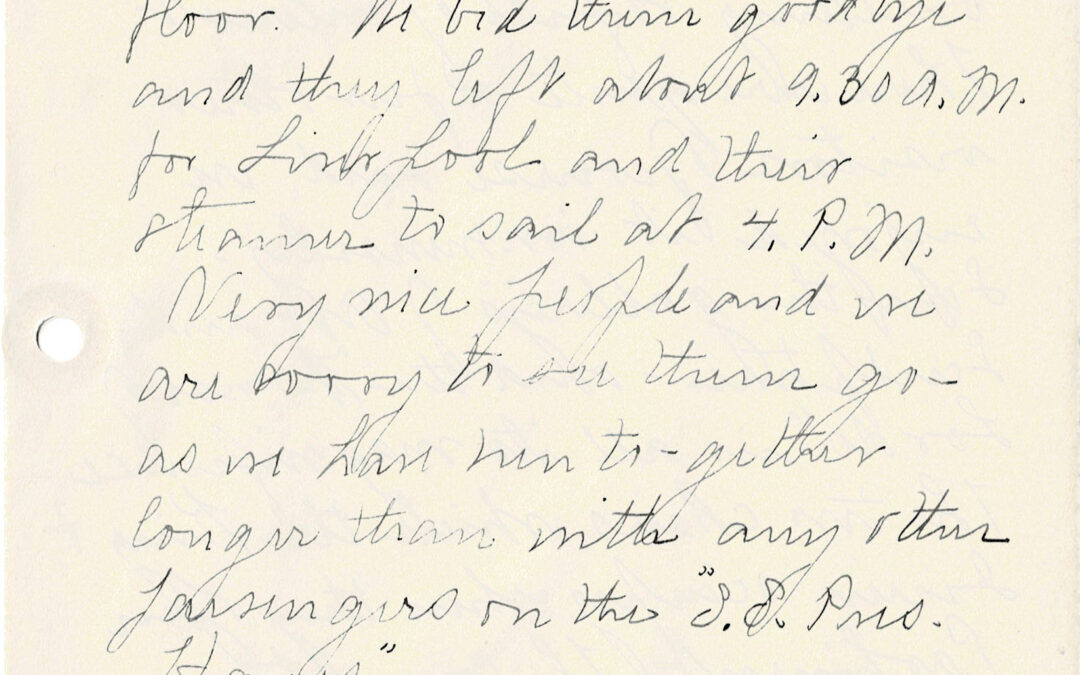 floor. We bid them goodbye
and they left about 9.30 A.M.
for Liverpool and their
steamer to sail at 4. P.M.
Very nice people and we
are sorry to see them go-
as we have been to-gether
longer than with any other
passengers on the "S.S. Pres.
Hayes"